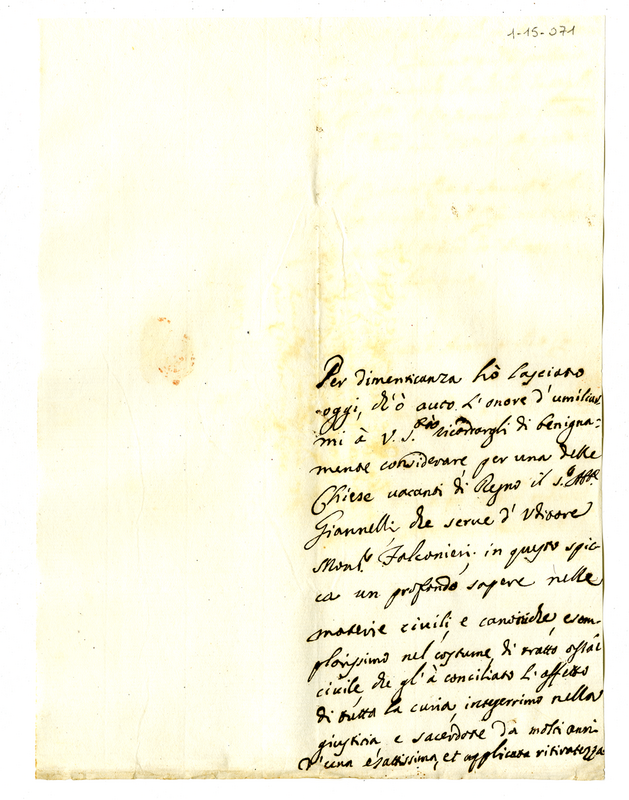 1-15-071
Per dimenticanza hò lasciato
oggi, ch'ò auto l'onore d'umiliar
mi à V. S. ricordargli di benigna=
mente considerare per una delle
Chiese vacanti di Regno il S.r Abb.e
Giannelli, che serve d'Uditore
Mons.r Falconieri. in questo spic
ca un profondo sapere nelle
materie civili, e canoniche esem-
plarissimo nel costume, di tratto assai
civile, che gl'à conciliato l'affetto
di tutta la curia integerrimo nella
giustizia e sacerdote da molti anni
d'una esattissima, et applicata ritiratezza